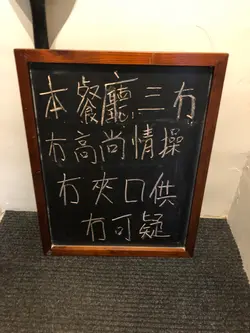 本餐廳三冇
冇高尚情操
冇夾口供
冇可疑